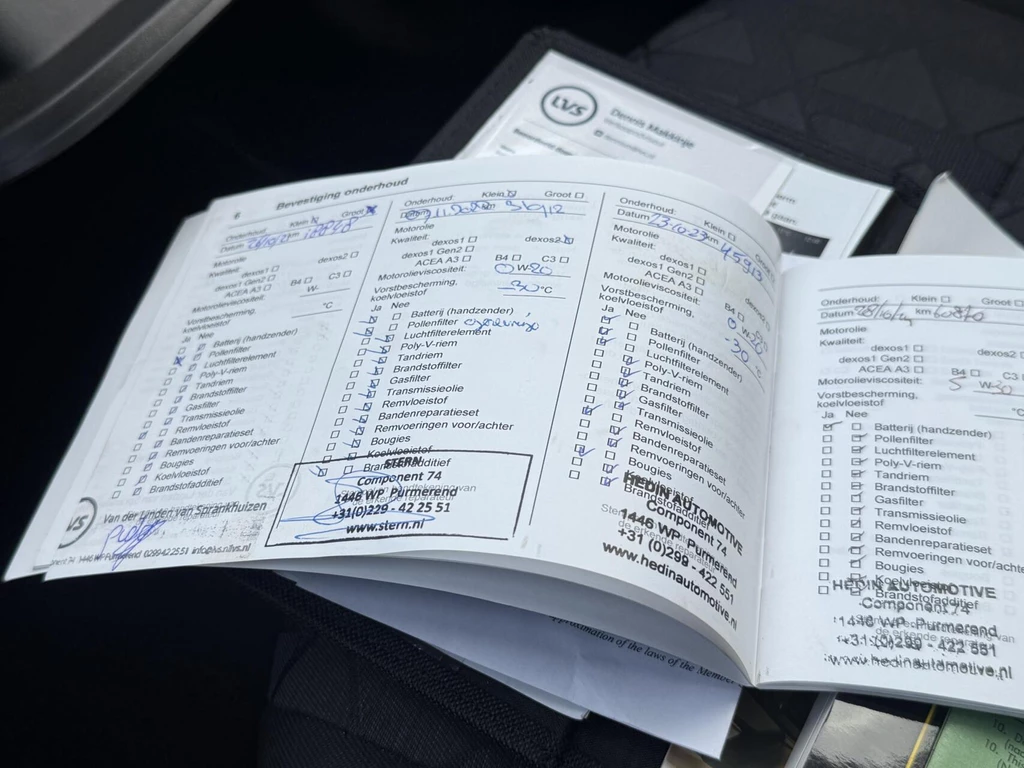 LVS
Dennis Makkinje
6 Bevestiging onderhoud
Onderhoud: Klein Groot
Datum km
Motorolie
Kwaliteit:
dexos1 dexos2
dexos1 Gen2
ACEA A3 B4 C3
Motorolieviscositeit: W-
Vorstbescherming, °C
koelvloeistof
Ja Nee
Batterij (handzender)
Pollenfilter
Luchtfilterelement
Poly-V-riem
Tandriem
Brandstoffilter
Gasfilter
Transmissieolie
Remvloeistof
Bandenreparatieset
Remvoeringen voor/achter
Bougies
Koelvloeistof
Brandstofadditief
Van der Linden van Sprankhuizen
1446 WP Purmerend 0299 42 25 51 info@lvs.nl
Onderhoud: Klein Groot
Datum 11. km 31912
Motorolie
Kwaliteit:
dexos1 dexos2
dexos1 Gen2
ACEA A3 B4 C3
Motorolieviscositeit: 0 W-20
Vorstbescherming, -30 °C
koelvloeistof
Ja Nee
Batterij (handzender)
Pollenfilter
Luchtfilterelement
Poly-V-riem
Tandriem
Brandstoffilter
Gasfilter
Transmissieolie
Remvloeistof
Bandenreparatieset
Remvoeringen voor/achter
Bougies
Koelvloeistof
Brandstofadditief
STERN
Component 74
1446 WP Purmerend
+31(0)229 - 42 25 51
www.stern.nl
Onderhoud: Klein
Datum 13-10-23 km 45913
Motorolie
Kwaliteit:
dexos1 dexos2
dexos1 Gen2
ACEA A3 B4
Motorolieviscositeit: 0 W-20
Vorstbescherming, -30 °C
koelvloeistof
Ja Nee
Batterij (handzender)
Pollenfilter
Luchtfilterelement
Poly-V-riem
Tandriem
Brandstoffilter
Gasfilter
Transmissieolie
Remvloeistof
Bandenreparatieset
Remvoeringen voor/achter
Bougies
Koelvloeistof
Brandstofadditief
HEDIN AUTOMOTIVE
Component 74
1446 WP Purmerend
+31 (0)299 - 422 551
www.hedinautomotive.nl
Onderhoud: Klein Groot
Datum km 60870
Motorolie
Kwaliteit:
dexos1 dexos2
dexos1 Gen2
ACEA A3 B4 C3
Motorolieviscositeit: 5 W-30
Vorstbescherming, °C
koelvloeistof
Ja Nee
Batterij (handzender)
Pollenfilter
Luchtfilterelement
Poly-V-riem
Tandriem
Brandstoffilter
Gasfilter
Transmissieolie
Remvloeistof
Bandenreparatieset
Remvoeringen voor/achter
Bougies
Koelvloeistof
Brandstofadditief
HEDIN AUTOMOTIVE
Component 74
1446 WP Purmerend
+31 (0)299 - 422 551
www.hedinautomotive.nl
approximation of the laws of the Member